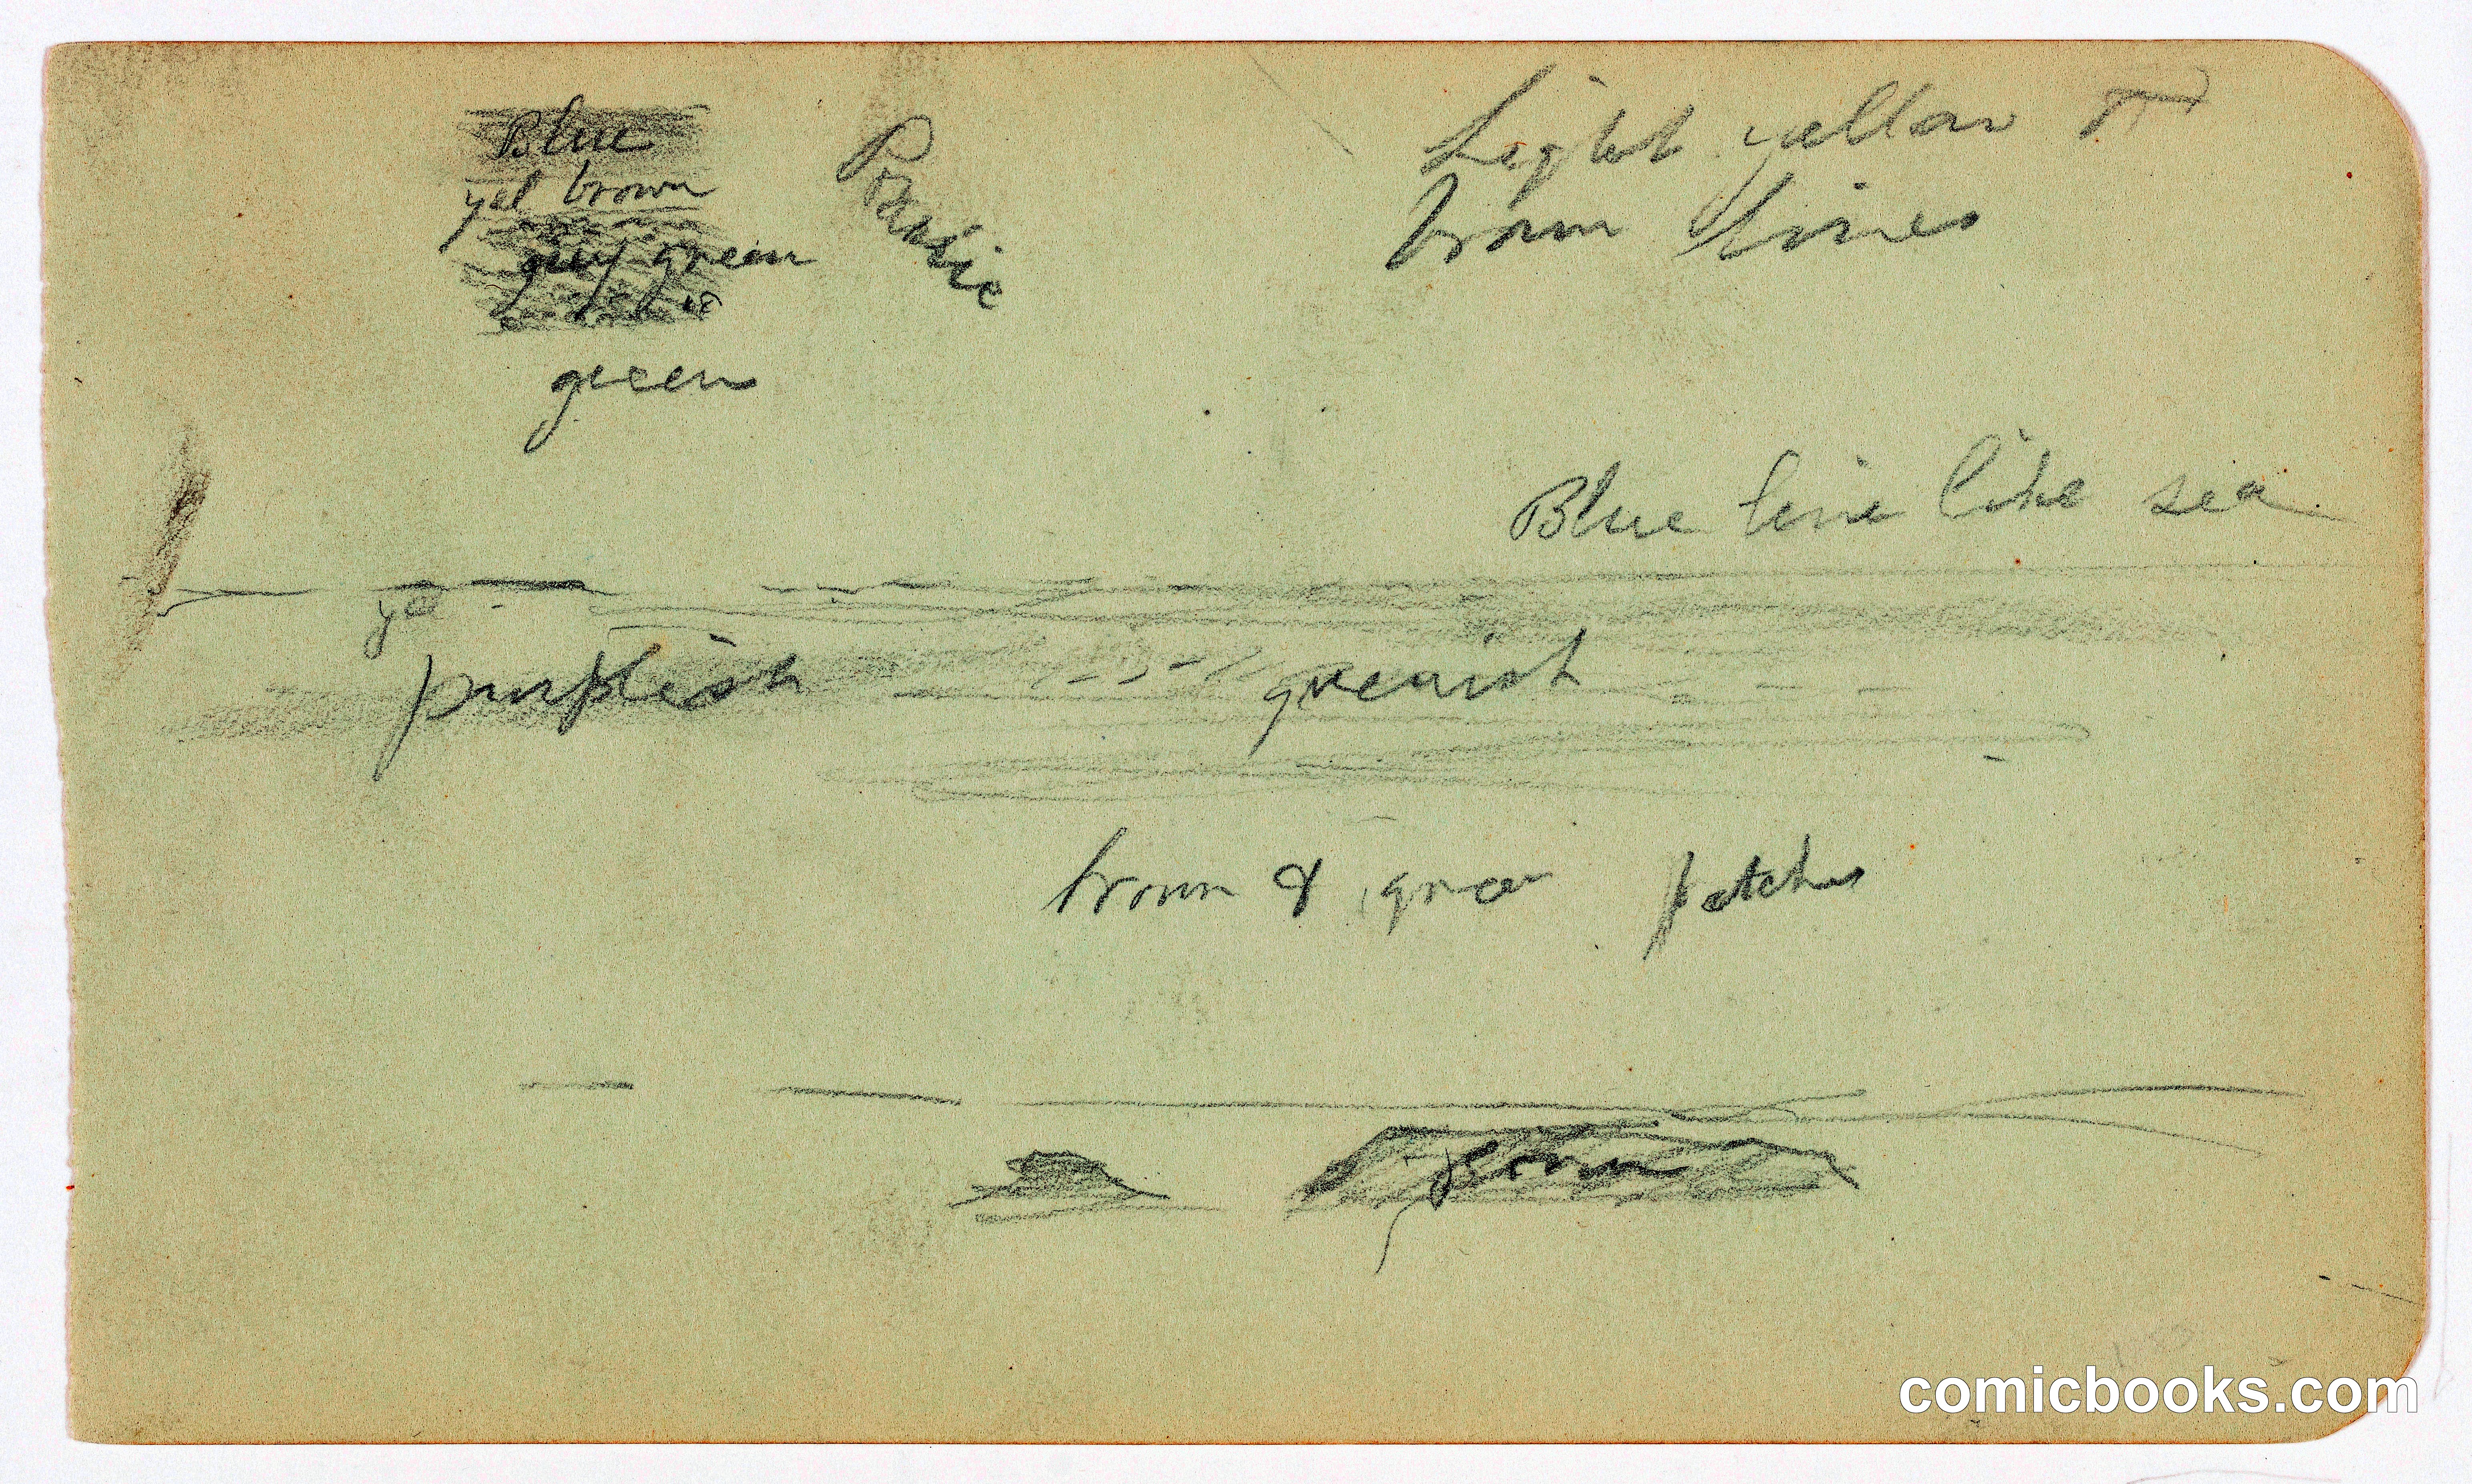 Blue
yel brown
grey green
green
Light yellow
brown lines
Blue line like sea
ye
purplish greenish
brown & green patches
comicbooks.com